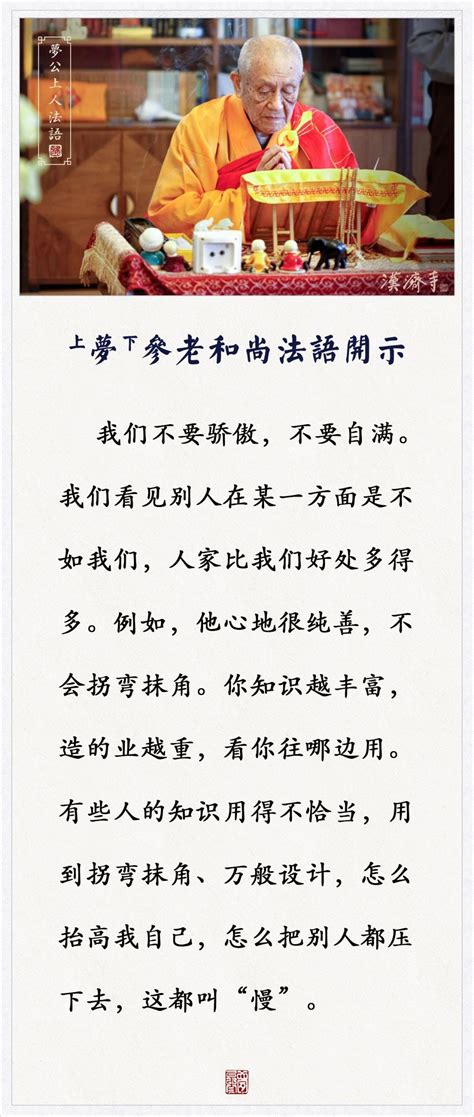 夢公上人法語
漢濟寺
上夢下參老和尚法語開示
我们不要骄傲，不要自满。
我们看见别人在某一方面是不
如我们，人家比我们好处多得
多。例如，他心地很纯善，不
会拐弯抹角。你知识越丰富，
造的业越重，看你往哪边用。
有些人的知识用得不恰当，用
到拐弯抹角、万般设计，怎么
抬高我自己，怎么把别人都压
下去，这都叫“慢”。